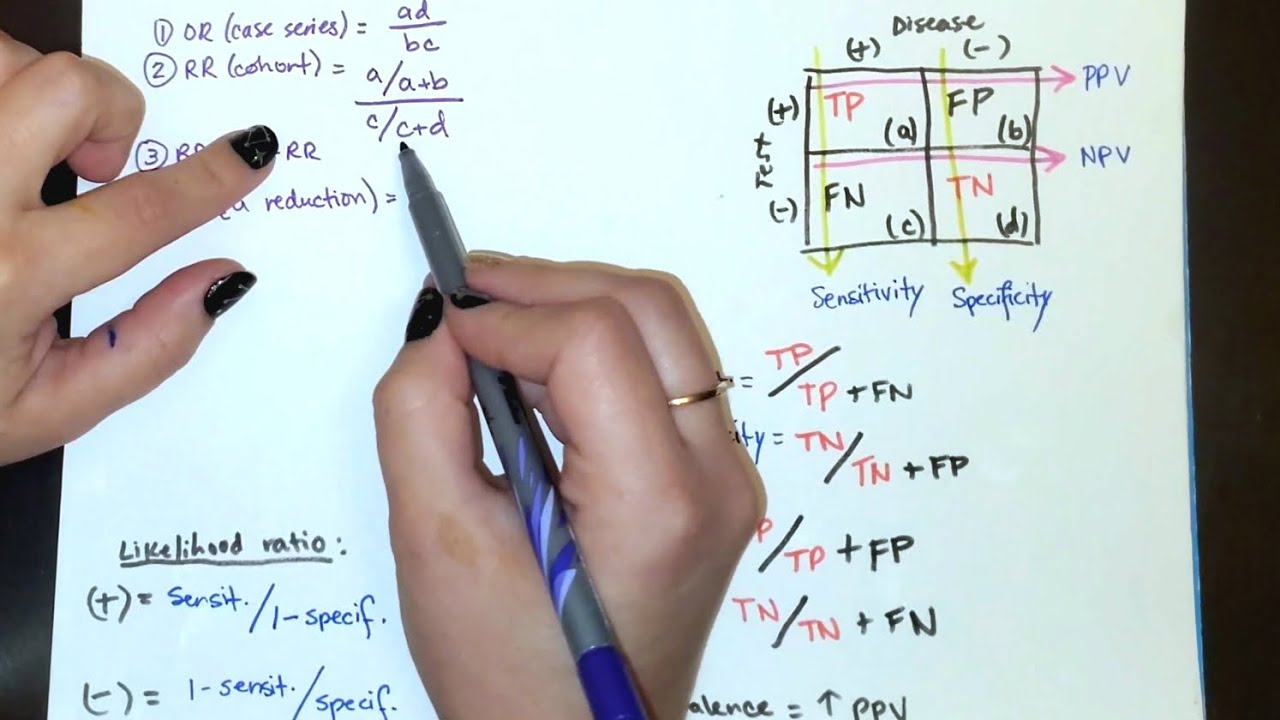 ① OR (case series) = ad/bc
② RR (cohort) = a/a+b
c/c+d
③ RR
reduction) =
Disease
(+) (-)
Test
(+) TP (a) FP (b) PPV
(-) FN (c) TN (d) NPV
Sensitivity Specificity
= TP/TP + FN
= TN/TN + FP
/TP + FP
TN/TN + FN
Likelihood ratio:
(+) = Sensit./1-specif.
(-) = 1-sensit./specif.
= ↑ PPV